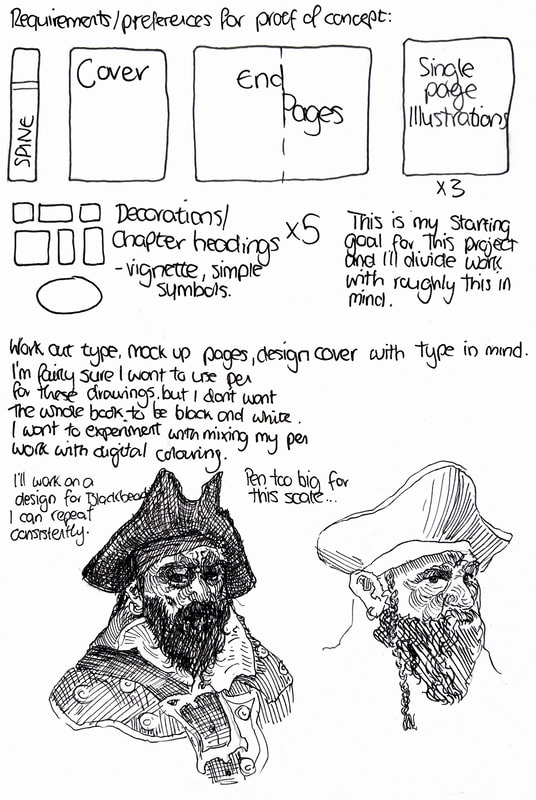 Requirements/preferences for proof of concept:
SPINE
Cover
End
Pages
Single
page
Illustrations
x3
Decorations/
Chapter headings
x5
-vignette, simple
symbols.
This is my starting
goal for this project
and I'll divide work
with roughly this in
mind.
Work out type, mock up pages, design cover with type in mind.
I'm fairly sure I want to use pen
for these drawings. but I don't want
the whole book to be black and white.
I want to experiment with mixing my pen
work with digital colouring.
I'll work on a
design for Blackbeard
I can repeat
consistently.
Pen too big for
this scale...